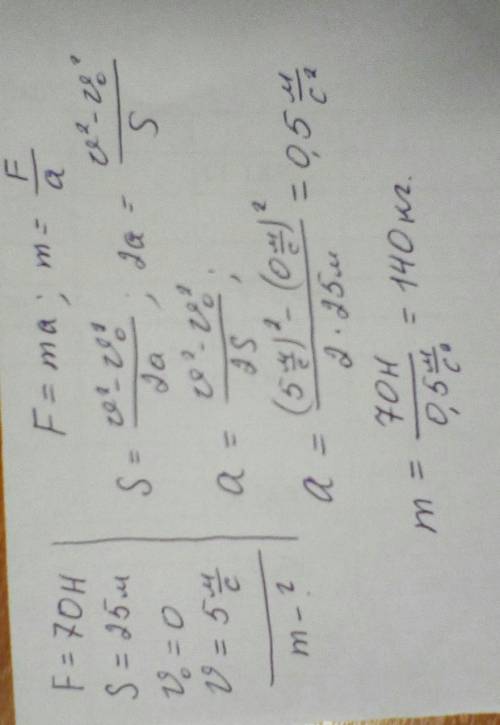 F = 70Н
S = 25м
v₀ = 0
v = 5 м/с
m - ?
F = ma; m = F/a
S = (v² - v₀²)/2a; 2a = (v² - v₀²)/S
a = (v² - v₀²)/2S;
a = ((5 м/с)² - (0 м/с)²)/(2·25м) = 0,5 м/с²
m = 70Н/(0,5 м/с²) = 140кг.